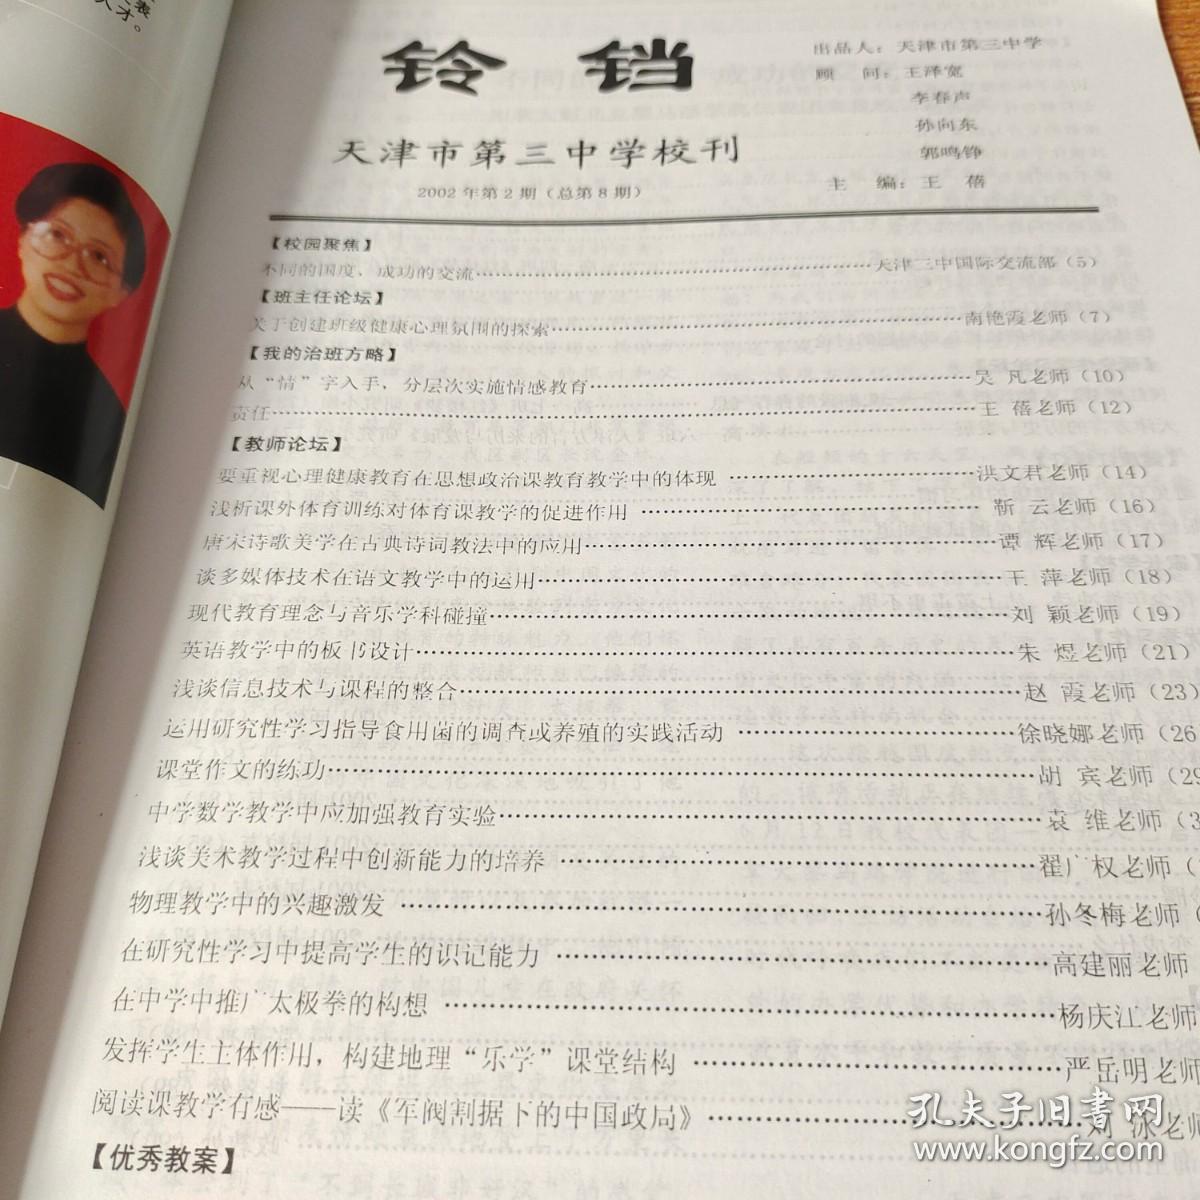 表
人才。
铃铛
天津市第三中学校刊
2002年第2期（总第8期）
出品人：天津市第三中学
顾 问：王泽宽
李春声
孙向东
郭鸣铮
主 编：王 蓓
【校园聚焦】
不同的国度、成功的交流……天津三中国际交流部（5）
【班主任论坛】
关于创建班级健康心理氛围的探索……南艳霞老师（7）
【我的治班方略】
从“情”字入手，分层次实施情感教育……吴 凡老师（10）
责任……王 蓓老师（12）
【教师论坛】
要重视心理健康教育在思想政治课教育教学中的体现……洪文君老师（14）
浅析课外体育训练对体育课教学的促进作用……靳 云老师（16）
唐宋诗歌美学在古典诗词教法中的应用……谭 辉老师（17）
谈多媒体技术在语文教学中的运用……王 萍老师（18）
现代教育理念与音乐学科碰撞……刘 颖老师（19）
英语教学中的板书设计……朱 煜老师（21）
浅谈信息技术与课程的整合……赵 霞老师（23）
运用研究性学习指导食用菌的调查或养殖的实践活动……徐晓娜老师（26
课堂作文的练功……胡 宾老师（29
中学数学教学中应加强教育实验……袁 维老师（3
浅谈美术教学过程中创新能力的培养……翟广权老师（
物理教学中的兴趣激发……孙冬梅老师（
在研究性学习中提高学生的识记能力……高建丽老师
在中学中推广太极拳的构想……杨庆江老师
发挥学生主体作用，构建地理“乐学”课堂结构……严岳明老师
阅读课教学有感——读《军阀割据下的中国政局》……刘 泳老师
【优秀教案】
孔夫子旧书网
www.kongfz.com